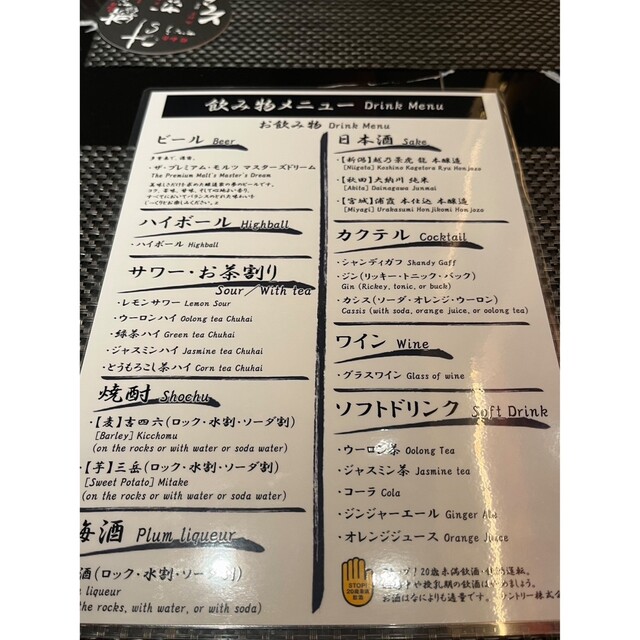 飲み物メニュー Drink Menu
お飲み物 Drink Menu
ビール Beer
ザ・プレミアム・モルツ マスターズドリーム
The Premium Malt's Master's Dream
ハイボール Highball
・ハイボール Highball
サワー・お茶割り
Sour／With tea
・レモンサワー Lemon Sour
・ウーロンハイ Oolong tea Chuhai
・緑茶ハイ Green tea Chuhai
・ジャスミンハイ Jasmine tea Chuhai
・とうもろこし茶ハイ Corn tea Chuhai
焼酎 Shochu
・【麦】吉四六(ロック・水割・ソーダ割)
[Barley] Kicchomu
(on the rocks or with water or soda water)
・【芋】三岳(ロック・水割・ソーダ割)
[Sweet Potato] Mitake
(on the rocks or with water or soda water)
梅酒 Plum liqueur
酒(ロック・水割・ソーダ割)
liqueur
(on the rocks, with water, or with soda)
日本酒 Sake
・【新潟】越乃景虎 龍 本醸造
[Niigata] Koshino Kagetora Ryu Honjozo
・【秋田】大納川 純米
[Akita] Dainagawa Junmai
・【宮城】浦霞 本仕込 本醸造
[Miyagi] Urakasumi Honjikomi Honjozo
カクテル Cocktail
・シャンディガフ Shandy Gaff
・ジン(リッキー・トニック・バック)
Gin (Rickey, tonic, or buck)
・カシス(ソーダ・オレンジ・ウーロン)
Cassis (with soda, orange juice, or oolong tea)
ワイン Wine
・グラスワイン Glass of wine
ソフトドリンク Soft Drink
・ウーロン茶 Oolong Tea
・ジャスミン茶 Jasmine tea
・コーラ Cola
・ジンジャーエール Ginger Ale
・オレンジジュース Orange Juice
STOP!
20歳未満
飲酒
20歳未満飲酒・
や授乳期の飲酒は
お酒はなによりも適量です。